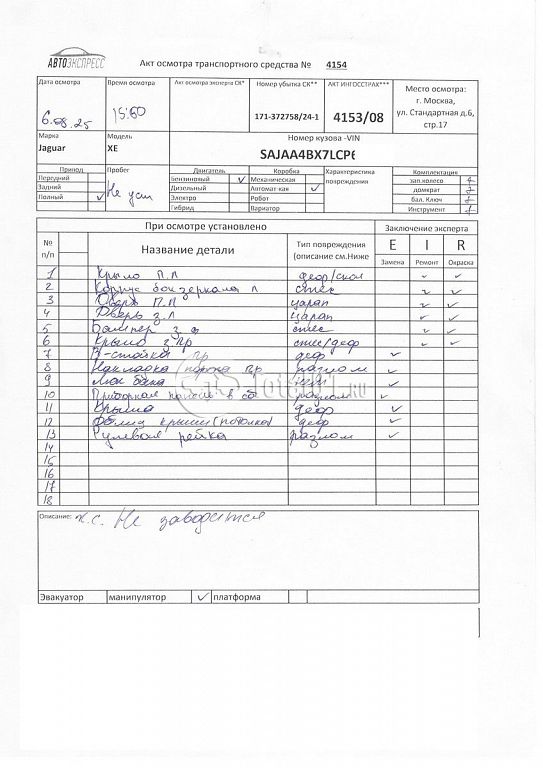 АВТОЭКСПРЕСС
Акт осмотра транспортного средства № 4154
Дата осмотра Время осмотра Акт осмотра эксперта СК* Номер убытка СК** АКТ ИНГОССТРАХ*** Место осмотра:
г. Москва,
ул. Стандартная д.6,
стр.17
6.08.25 15:60 171-372758/24-1 4153/08
Марка Модель Номер кузова -VIN
Jaguar XE SAJAA4BX7LCP6
Привод Пробег Двигатель Коробка Характеристика повреждения Комплектация
Передний Не уст Бензиновый ✓ Механическая зап.колесо
Задний Дизельный Автомат-кая ✓ домкрат
Полный ✓ Электро Робот бал. Ключ
Гибрид Вариатор Инструмент
При осмотре установлено Заключение эксперта
№ п/п Название детали Тип повреждения (описание см.Ниже E I R
Замена Ремонт Окраска
1 Крыло П.Л деф/скол ✓ ✓
2 Корпус бок зеркала л стес ✓ ✓
3 Дверь П.Л царап ✓ ✓
4 Дверь З.Л царап ✓ ✓
5 Бампер з.ф стес ✓ ✓
6 Крыло з.пр стес/деф ✓ ✓
7 В-стойка пр деф ✓
8 Накладка порога пр разлом ✓
9 Люк бака ✓
10 Приборная панель в сб разлом ✓
11 Крыша деф ✓
12 Облиц крыши (потолка) деф ✓
13 Рулевая рейка разлом ✓
14
15
16
17
18
Описание: т.с. Не заводится
Эвакуатор манипулятор ✓ платформа